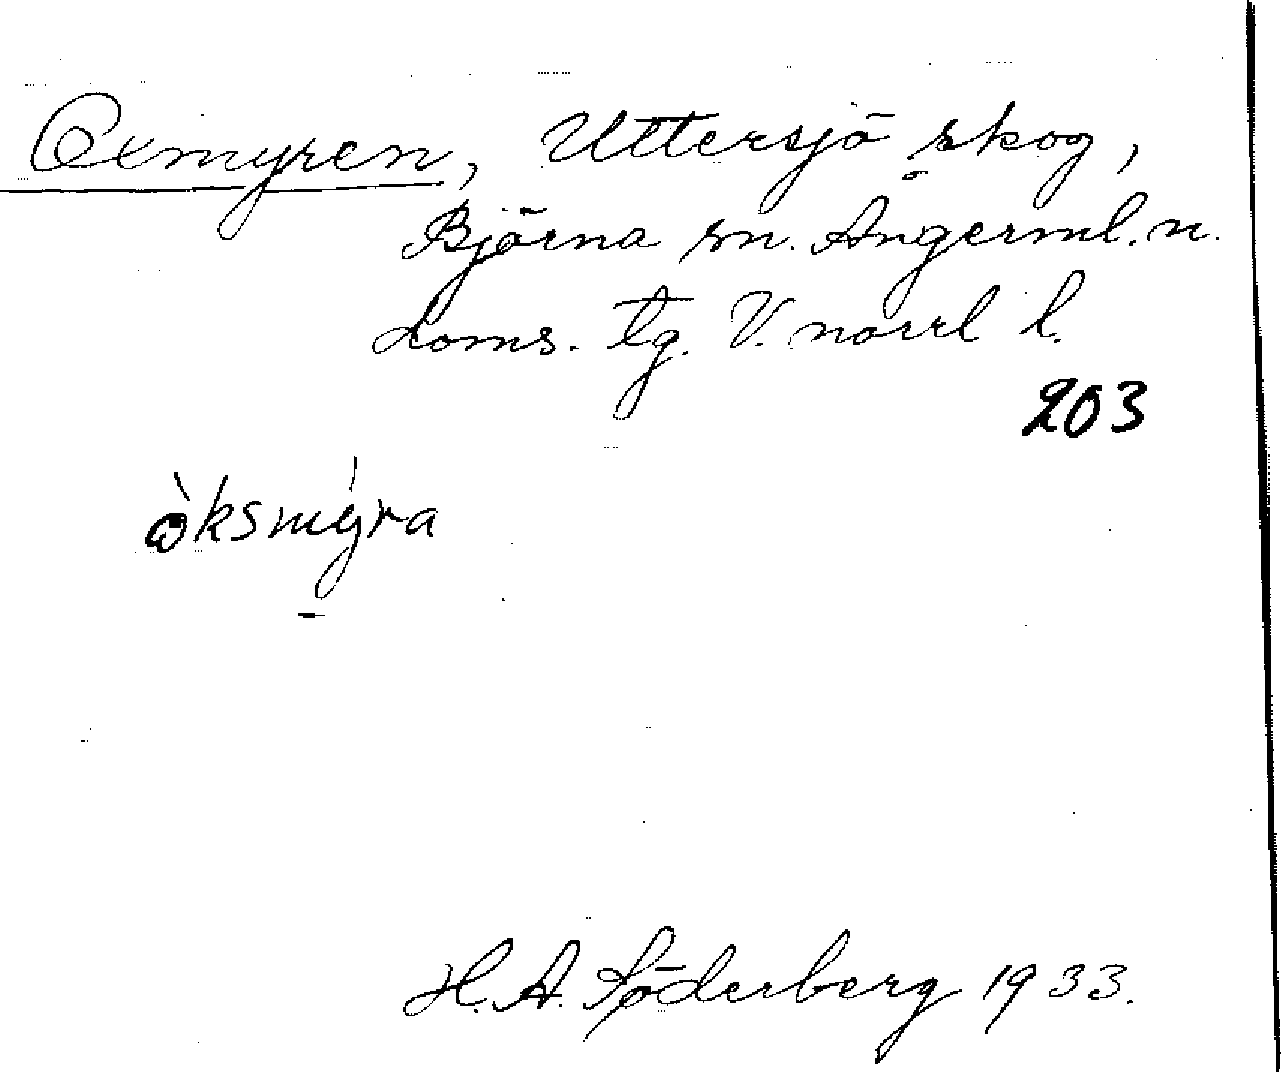 Oxmyren, Uttersjö skog,
Björna sn. Ångerml. n.
Doms. tg. V. norrl l.
203
òksmýra
H. A. Söderberg 1933.